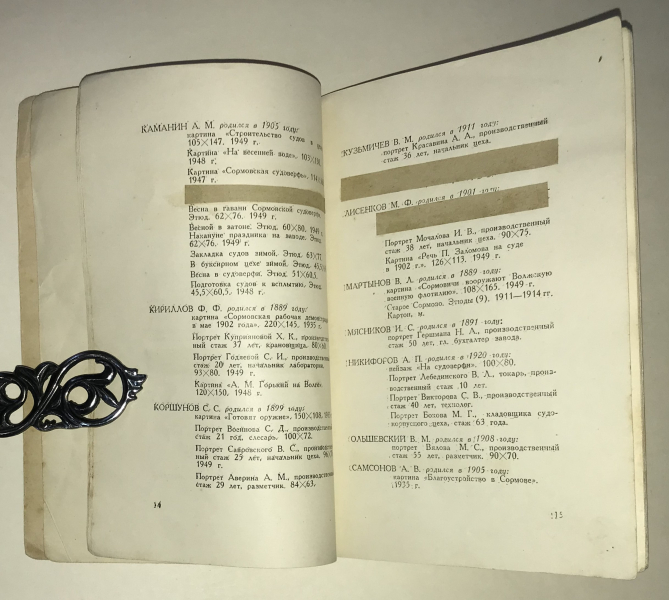 КАМАНИН А. М. родился в 1905 году:
картина «Строительство судов в
105×147. 1949 г.
Картина «На весенней воде». 103×
1948 г.
Картина «Сормовская судоверфь».
1947 г.
Весна в гавани Сормовской судоверфи.
Этюд. 62×76. 1949 г.
Весной в затоне. Этюд. 60×80. 1949
Накануне праздника на заводе. Этюд.
62×76. 1949 г.
Закладка судов зимой. Этюд. 63×77.
В буксирном цехе зимой. Этюд.
Весна в судоверфи. Этюд. 51×60,5.
Подготовка судов к всплытию. Этюд.
45,5×60,5. 1948 г.
КИРИЛЛОВ Ф. Ф. родился в 1889 году:
картина «Сормовская рабочая
в мае 1902 года». 220×145. 1935 г.
Портрет Куприяновой Х. К.,
ный стаж 37 лет, крановщица.
Портрет Годяевой С. И.,
стаж 20 лет, начальник лаборатории.
93×80. 1949 г.
Картина «А. М. Горький на Волге».
120×150. 1948 г.
КОРШУНОВ С. С. родился в 1899 году:
картина «Готовят оружие». 150×108.
Портрет Воинова С. Д.,
стаж 21 год, слесарь. 100×72.
Портрет В. С.,
ный стаж 25 лет, начальник цеха.
1949 г.
Портрет Аверина А. М.,
стаж 29 лет, разметчик. 84×63.
14
КУЗЬМИЧЕВ В. М. родился в 1911 году:
портрет Красавина А. А., производственный
стаж 36 лет, начальник цеха.
ЛИСЕНКОВ М. Ф. родился в 1901 году:
Портрет Мочалова И. В., производственный
стаж 38 лет, начальник цеха. 90×75.
Картина «Речь П. Заломова на суде
в 1902 г.». 126×113. 1949 г.
МАРТЫНОВ В. Л. родился в 1889 году:
картина «Сормовичи вооружают Волжскую
военную флотилию». 108×165. 1949 г.
Старое Сормово. Этюды (9). 1911—1914 гг.
Картон, м.
МЯСНИКОВ И. С. родился в 1891 году:
портрет Гершмана Н. А., производственный
стаж 50 лет, гл. бухгалтер завода.
НИКИФОРОВ А. П. родился в 1920 году:
пейзаж «На судоверфи». 100×80.
Портрет Лебединского В. Л., токарь, произ-
водственный стаж 10 лет.
Портрет Викторова С. В., производственный
стаж 40 лет, технолог.
Портрет Бохова М. Г., кладовщика судо-
корпусного цеха, стаж 63 года.
ОЛЬШЕВСКИЙ В. М. родился в 1908 году:
портрет Вялова М. С., производственный
стаж 55 лет, разметчик. 90×70.
САМСОНОВ А. В. родился в 1905 году:
картина «Благоустройство в Сормове».
1935 г.
15